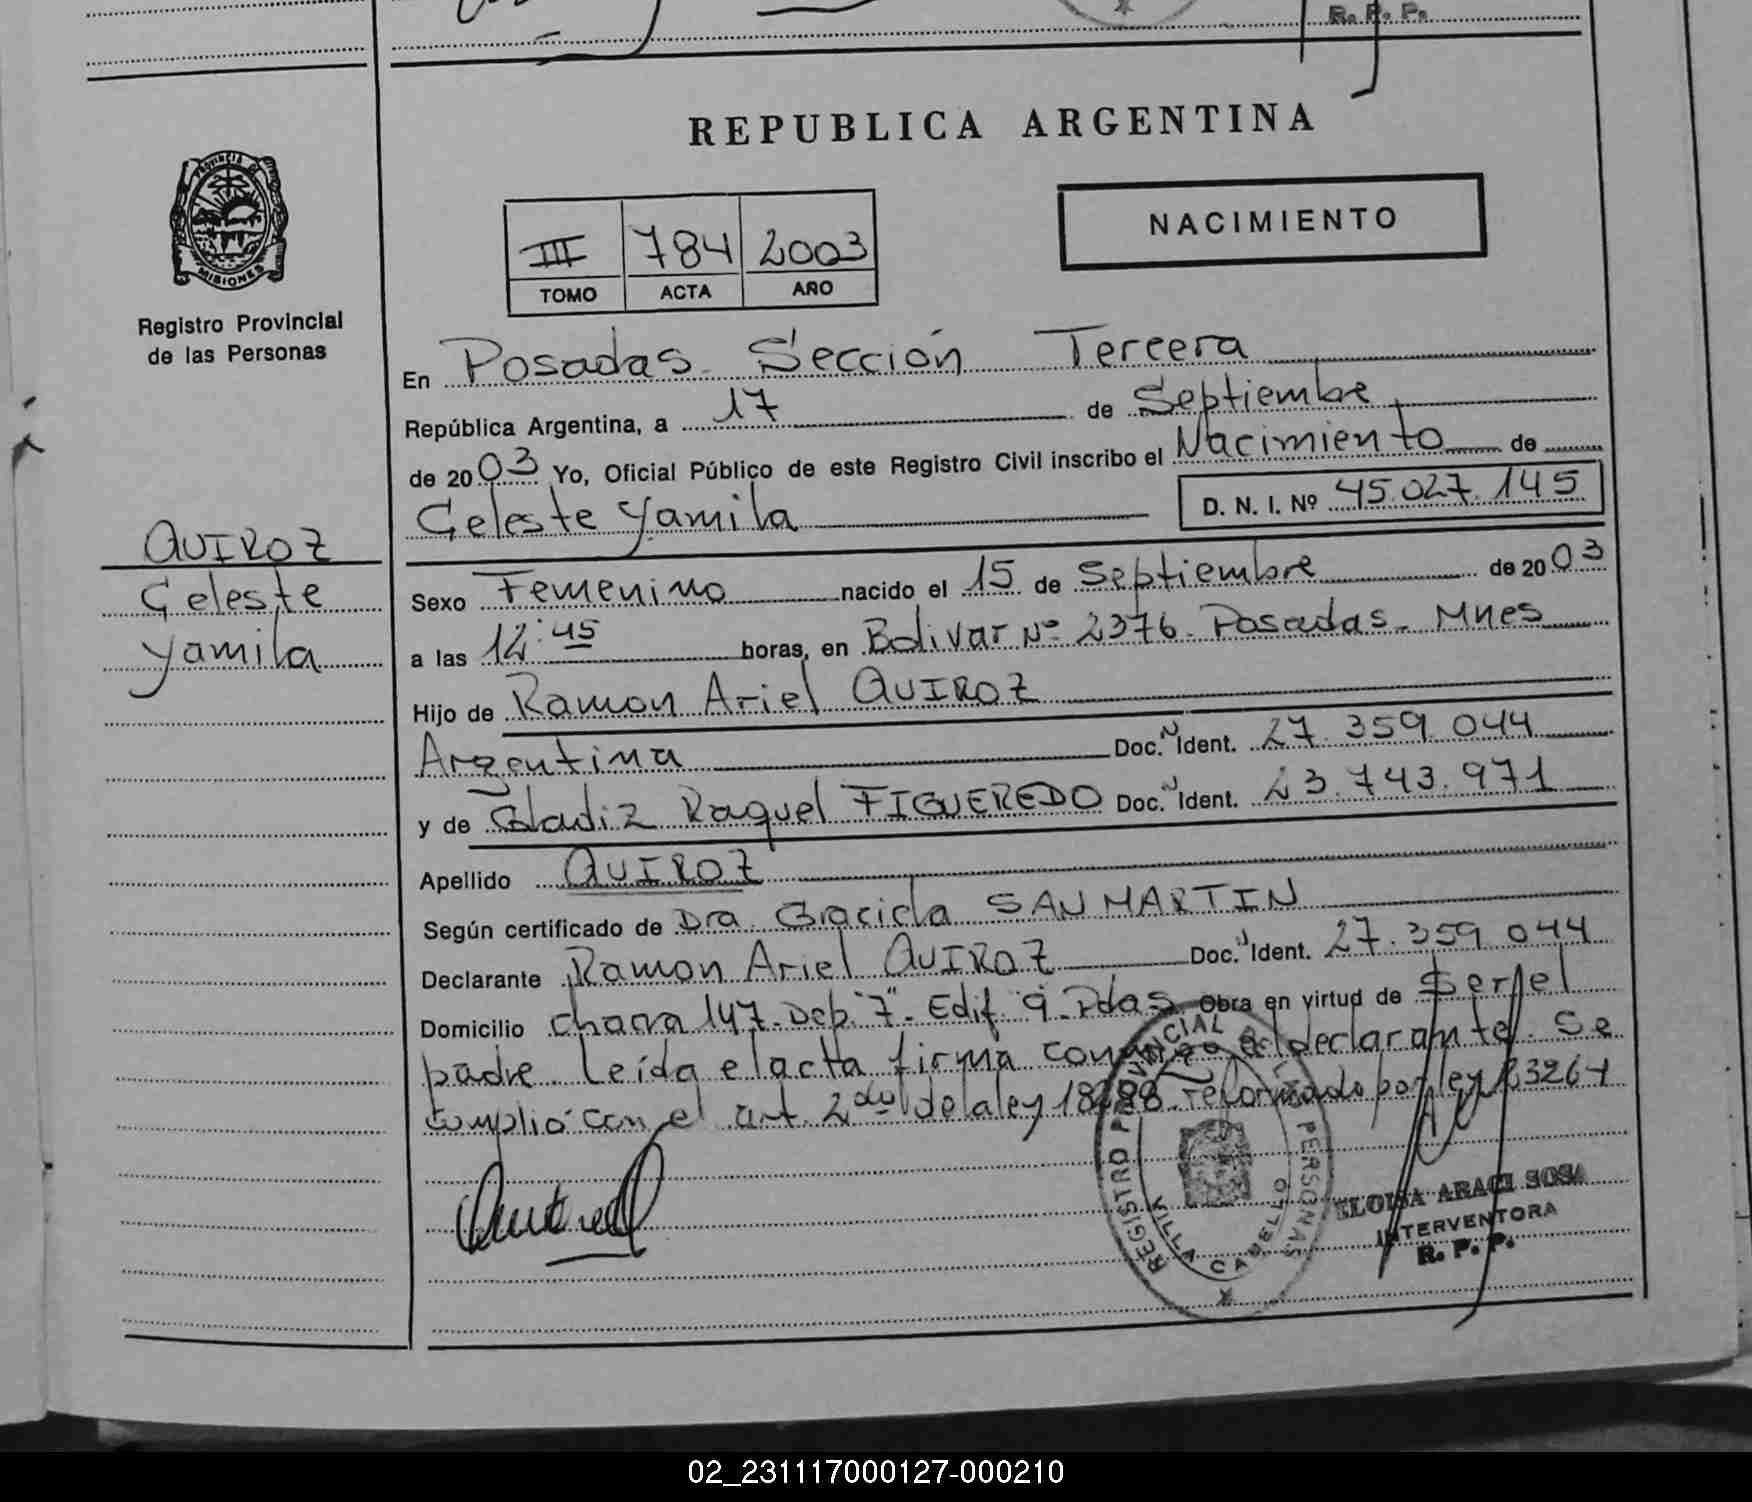 R. P. P.
REPUBLICA ARGENTINA
PROVINCIA DE
MISIONES
Registro Provincial
de las Personas
III 784 2003
TOMO ACTA AÑO
NACIMIENTO
En Posadas Sección Tercera
República Argentina, a 17 de Septiembre
de 2003 Yo, Oficial Público de este Registro Civil inscribo el Nacimiento de
Celeste Yamila D. N. I. Nº 45.027.145
QUIROZ
Celeste
Yamila
Sexo Femenino nacido el 15 de Septiembre de 2003
a las 12:45 horas, en Bolivar Nº 2376. Posadas. Mnes
Hijo de Ramon Ariel QUIROZ
Argentina Doc. N Ident. 27.359.044
y de Gladiz Raquel FIGUEREDO Doc. N Ident. 23.743.971
Apellido QUIROZ
Según certificado de Dra. Graciela SAN MARTIN
Declarante Ramon Ariel QUIROZ Doc. N Ident. 27.359.044
Domicilio chacra 147. Dep. "7". Edif. 9. Pdas Obra en virtud de Ser el
padre. Leída el acta firma conmigo el declarante. Se
cumplió con el art. 2do de la ley 18288. reformado por ley 23264
REGISTRO PROVINCIAL DE PERSONAS
VILLA CABELLO
ELOISA ARACI SOSA
INTERVENTORA
R. P. P.
02_231117000127-000210